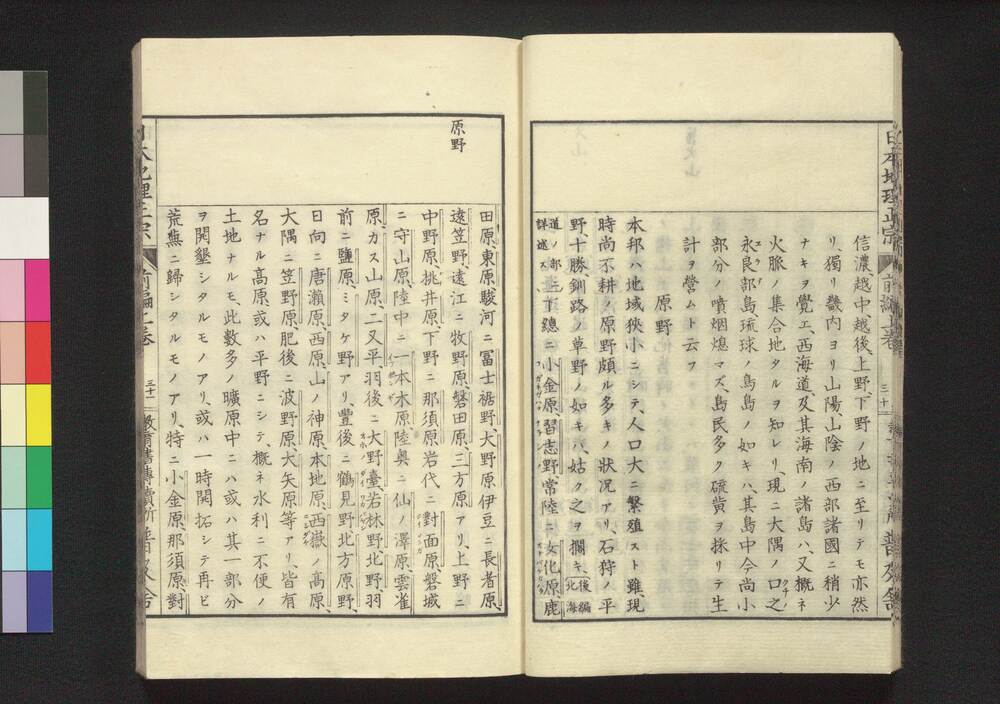 日本地理正宗
前編上卷
三十
普及舍
信濃、越中、越後、上野、下野ノ地ニ至リテモ亦然
リ、獨リ畿内ヨリ山陽、山陰ノ西部諸國ニ稍少
ナキヲ覺エ、西海道、及其海南ノ諸島ハ、又概ネ
火脈ノ集合地タルヲ知レリ、現ニ大隅ノ口之
永良部島、琉球ノ鳥島ノ如キハ、其島中今尚小
部分ノ噴烟熄マズ、島民多ク硫黄ヲ採リテ生
計ヲ營ムト云フ
原野
本邦ハ地域狹小ニシテ、人口大ニ繁殖スト雖、現
時尚不耕ノ原野頗ル多キノ狀況アリ、石狩ノ平
野、十勝、釧路ノ草野ノ如キハ、姑ク之ヲ擱キ、後編北海
道ノ部ニ詳述ス、下總ニ小金原、習志野、常陸ニ女化原、鹿
原野
田原、東原、駿河ニ冨士裾野、大野原、伊豆ニ長者原、
遠笠野、遠江ニ牧野原、磐田原、三方原アリ、上野ニ
中野原、桃井原、下野ニ那須原、岩代ニ對面原、磐城
ニ守山原、陸中ニ一本木原、陸奥ニ仙ノ澤原、雲雀
原、カス山原、二又平、羽後ニ大野臺、若林野、北野、羽
前ニ鹽原、ミタケ野アリ、豐後ニ鶴見野、北方原野、
日向ニ唐瀬原、西原、山ノ神原、本地原、西嶽ノ高原
大隅ニ笠野原、肥後ニ波野原、大矢原等アリ、皆有
名ナル高原、或ハ平野ニシテ、概ネ水利ニ不便ノ
土地ナルモ、此數多ノ曠原中ニハ或ハ其一部分
ヲ開墾シタルモノアリ、或ハ一時開拓シテ再ビ
荒蕪ニ歸シタルモノアリ、特ニ小金原、那須原、對
日本地理正宗
前編上卷
三十一
教育書專賣所普及舍